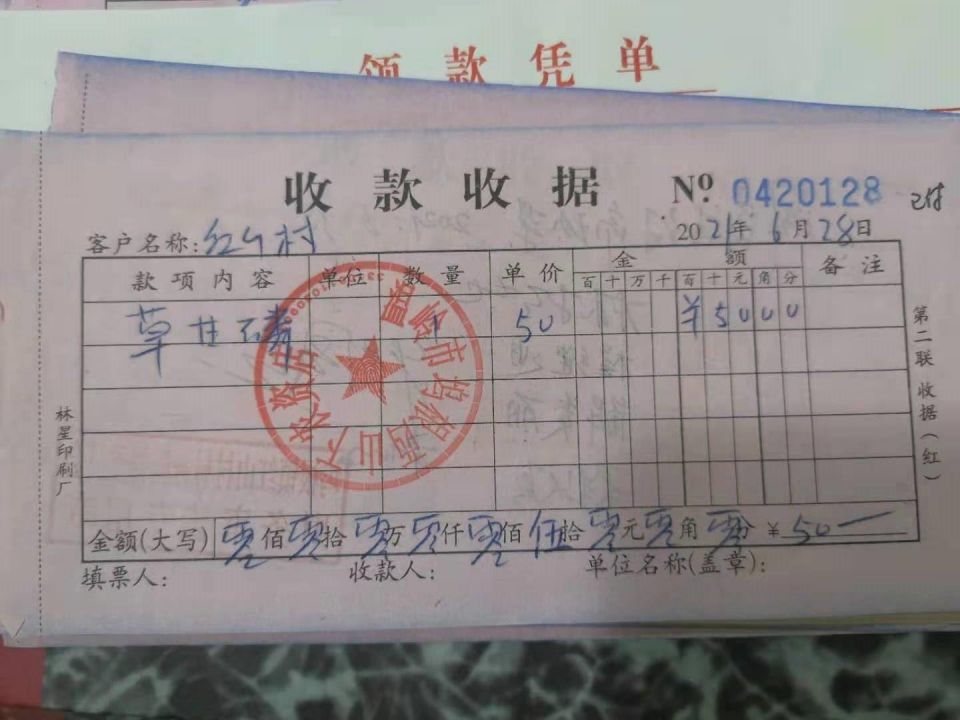 领款凭单
收款收据 Nº 0420128 已付
客户名称: 红山村 2021年6月28日
款项内容 单位 数量 单价 金额 备注
百 十 万 千 百 十 元 角 分
草甘磷 1 50 ¥5000
金额(大写) 零佰零拾零万零仟零佰伍拾零元零角零分 ¥50一
填票人: 收款人: 单位名称(盖章):
第二联 收据(红)
林星印刷厂